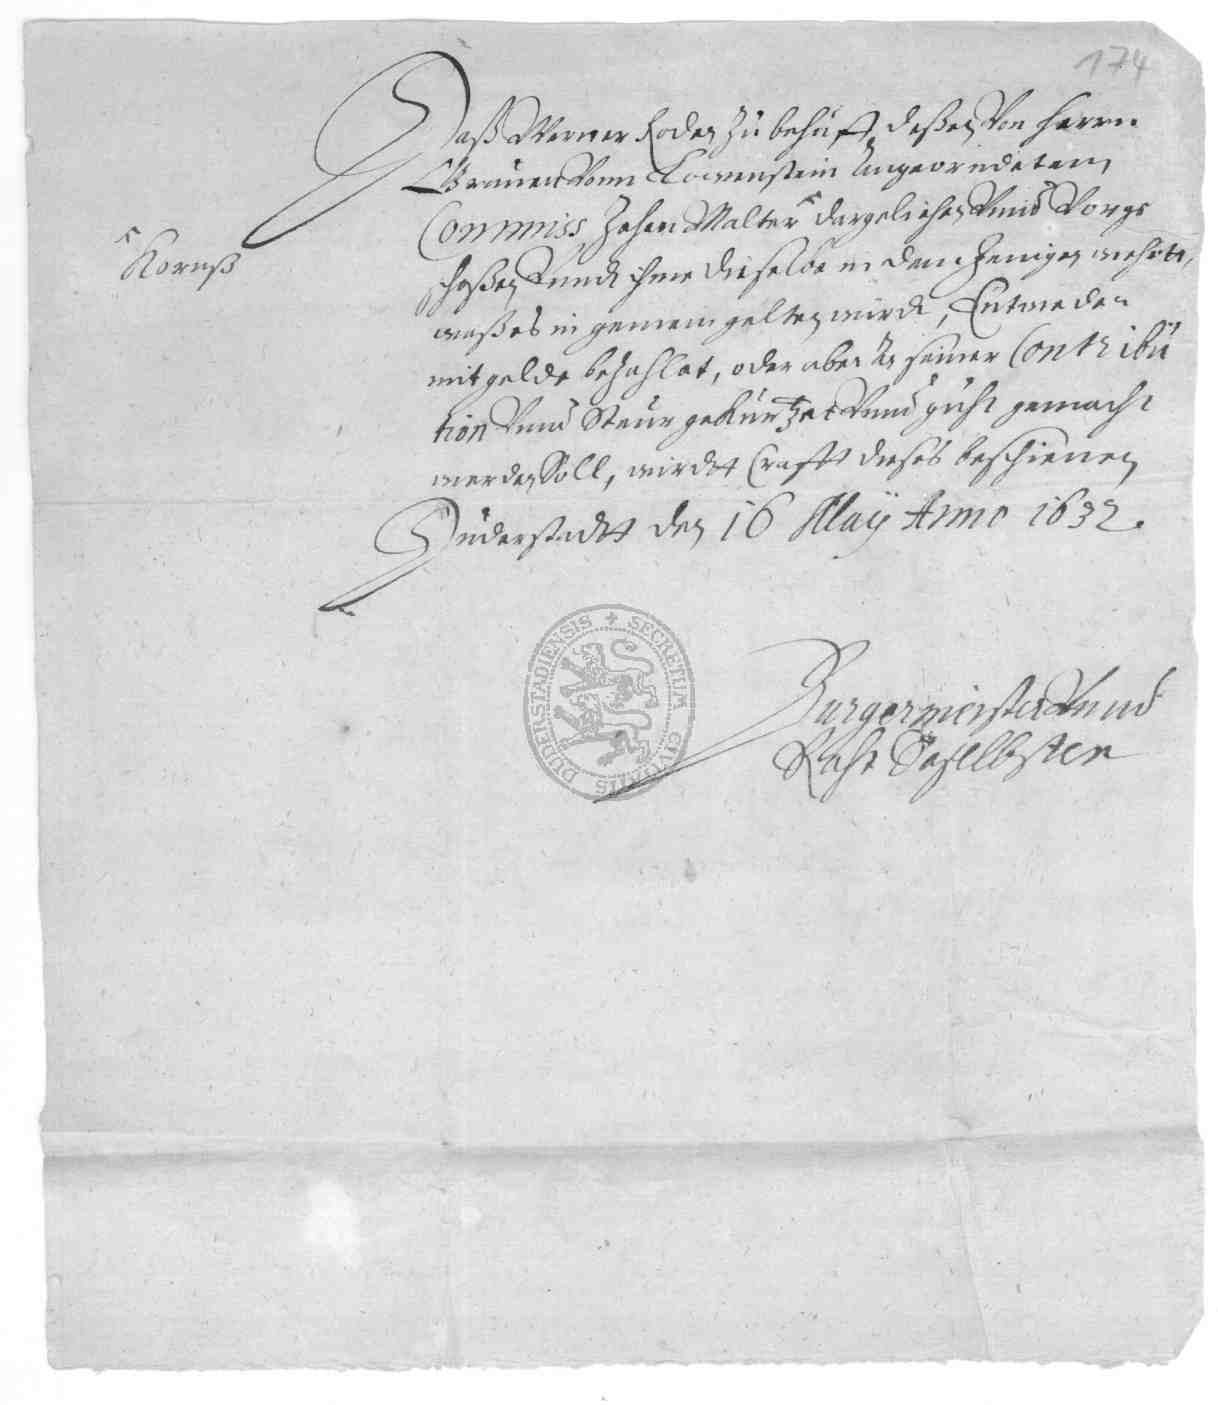 174
Daß Werner Roden zu behuff deßen von Herrn
Graven vonn Lowenstein Angeordeten
Commiss, Zehen Malter ⌃ dargeliehen vnnd vorge
⌃ Kornß
schoßen vnnd ihme dieselbe in dem Jenigen wehrtt,
waß es in gemein gelten wirdt, Entweder
mit gelde bezahlet, oder aber An seiner Contribu
tion vnnd Steur gekürtzet vnnd guht gemacht
werden Soll, wirdtt Crafft dieses beschienen
Duderstadtt den 16 May Anno 1632.
SECRETUM CIVITATIS DUDERSTADIENSIS
Burgermeister vnnd
Raht Daselbsten